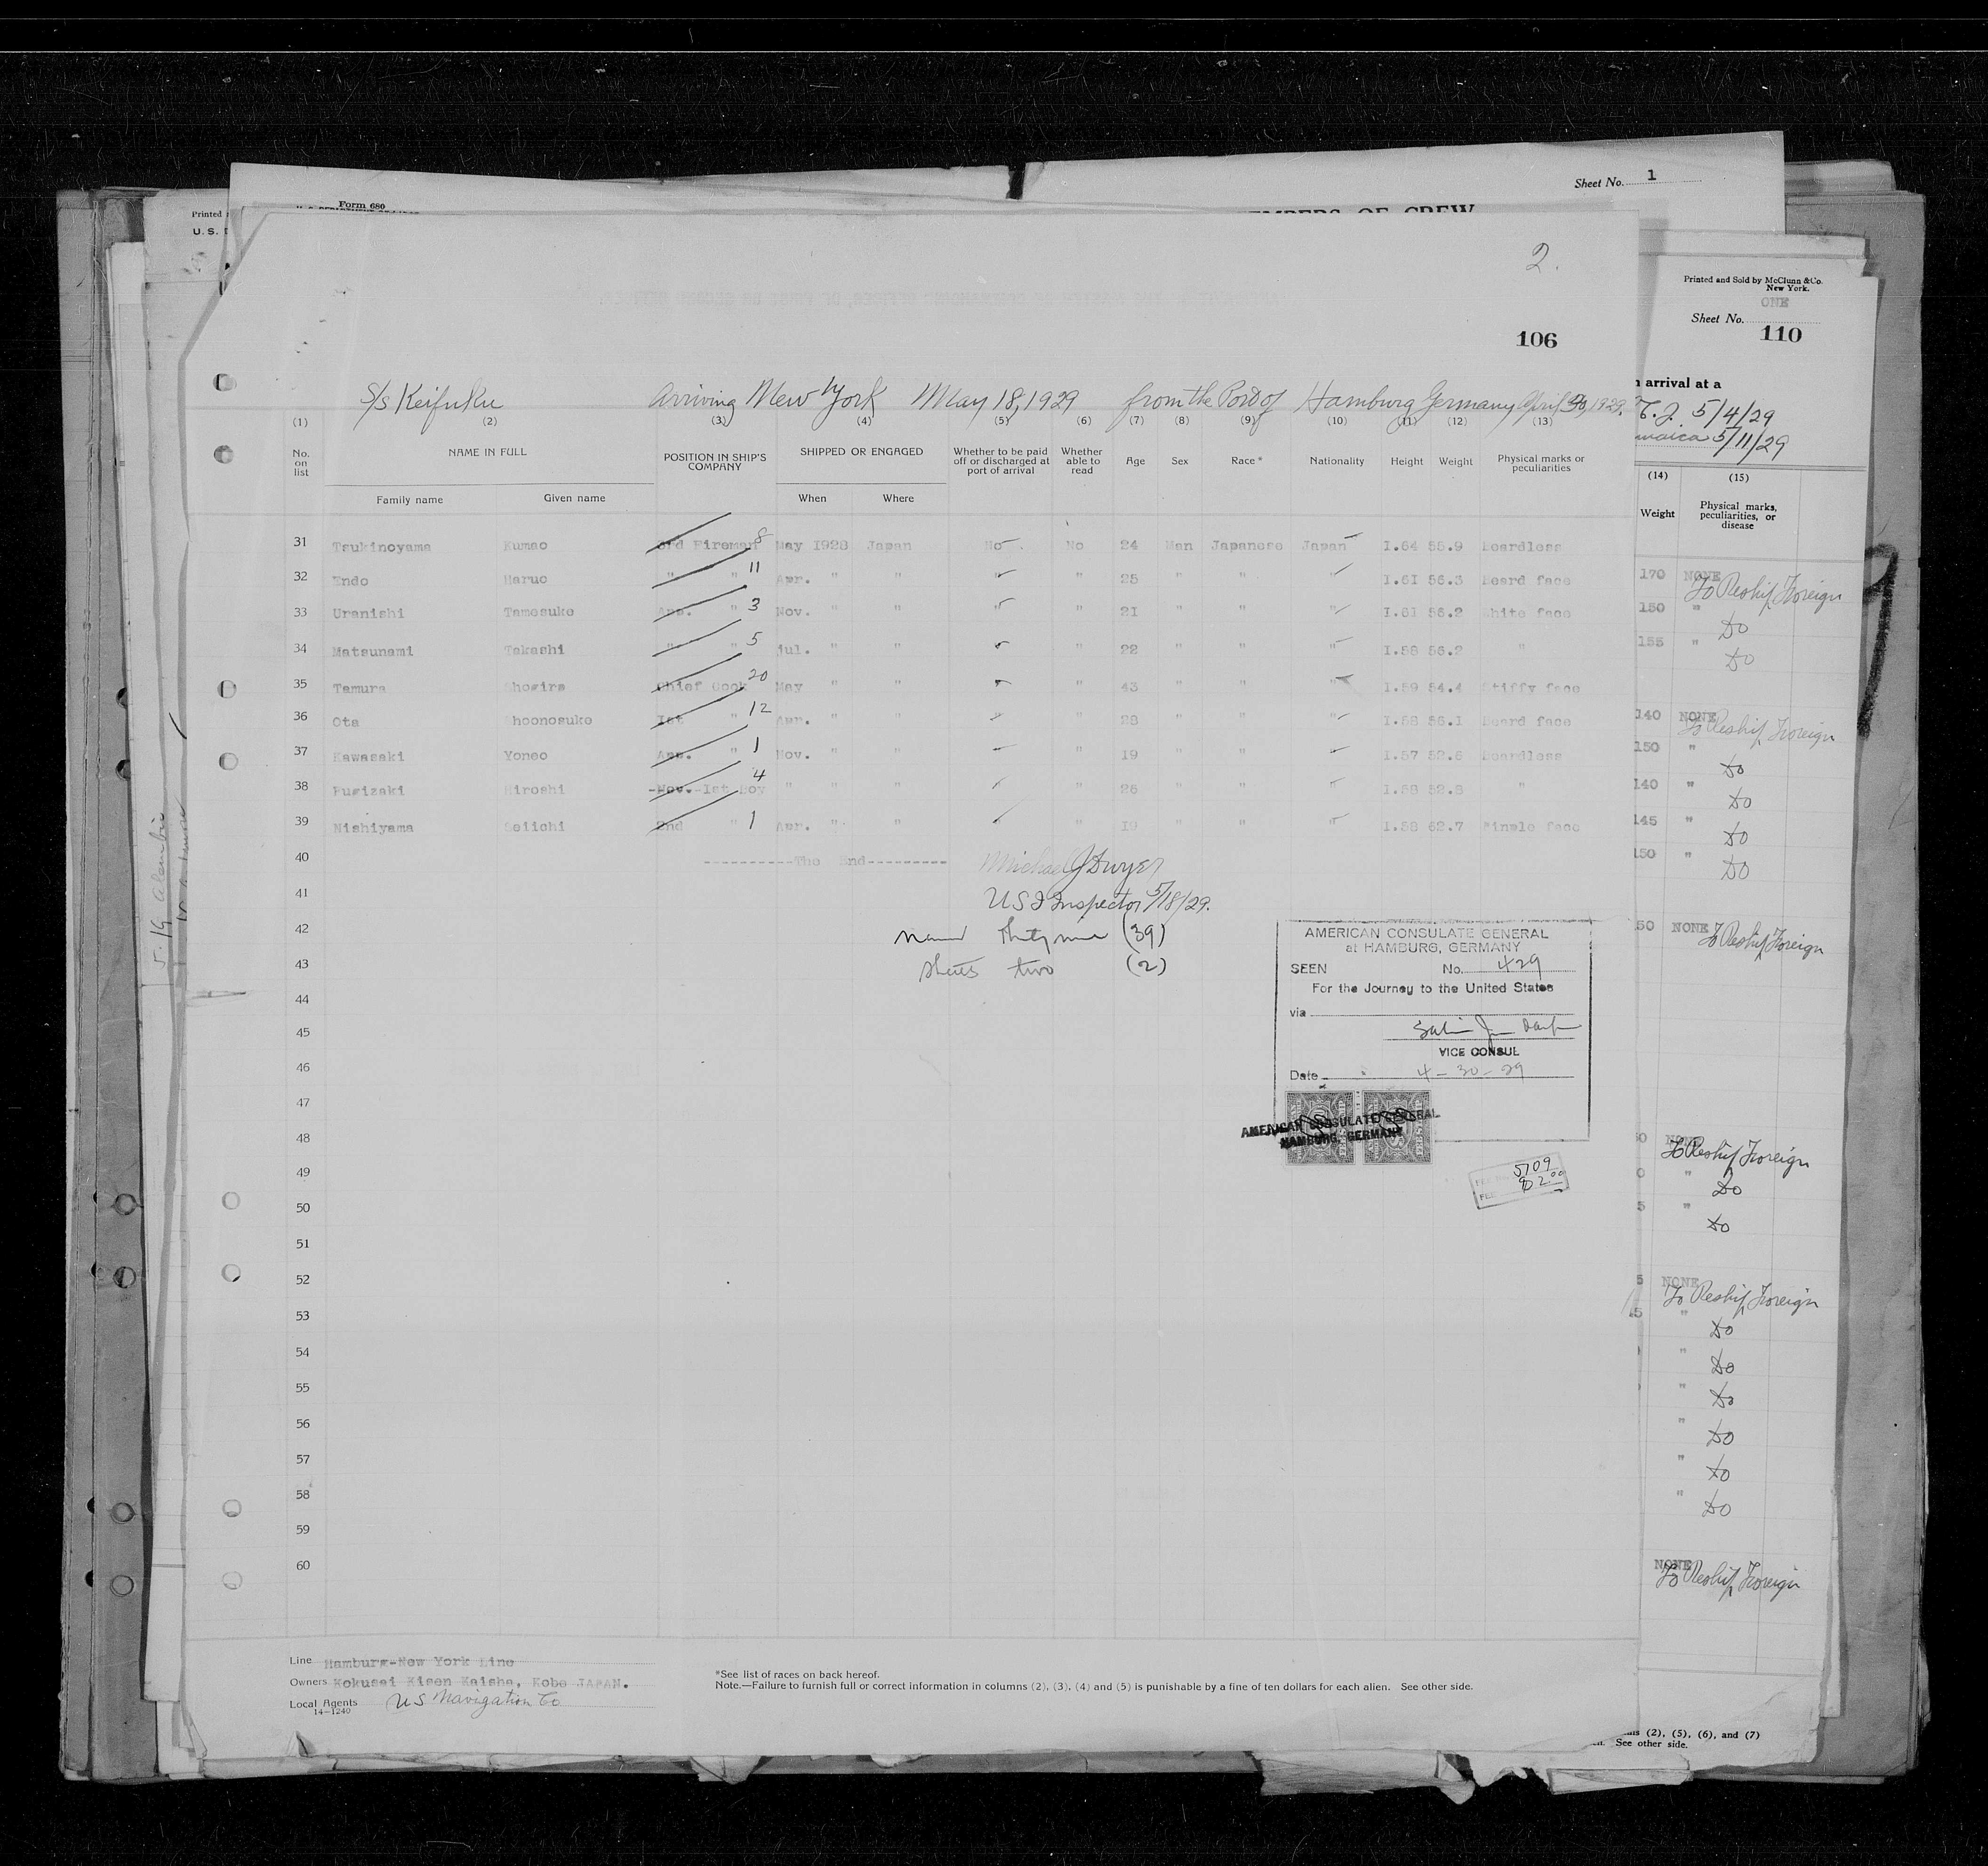 Sheet No. 1
Form 680
Printed
U. S.
MEMBERS OF CREW
2.
Printed and Sold by McClunn & Co.
New York.
ONE
Sheet No.
110
106
arrival at a
S/s Keifuku arriving New York May 18, 1929 from the Port of Hamburg Germany April 30, 1929.
5/4/29
5/11/29
(1) (2) (3) (4) (5) (6) (7) (8) (9) (10) (11) (12) (13)
No. on list NAME IN FULL POSITION IN SHIP'S COMPANY SHIPPED OR ENGAGED Whether to be paid off or discharged at port of arrival Whether able to read Age Sex Race* Nationality Height Weight Physical marks or peculiarities
Family name Given name When Where
(14) (15)
Weight Physical marks, peculiarities, or disease
31 Tsukinoyama Kumao 3rd Fireman 8 May 1928 Japan No No 24 Man Japanese Japan 1.64 55.9 Beardless
32 Endo Haruo " " 11 Apr. " " " " 25 " " " 1.61 56.3 Beard face
33 Uranishi Tamesuke App. " 3 Nov. " " " " 21 " " " 1.61 56.2 White face
34 Matsunami Takashi " " 5 jul. " " " " 22 " " " 1.58 56.2 "
35 Tamura Shogira Chief Cook 20 May " " " " 43 " " " 1.59 54.4 Stiffy face
36 Ota Shoonosuke 1st " 12 Apr. " " " " 28 " " " 1.58 56.1 Beard face
37 Kawasaki Yoneo App. " 1 Nov. " " " 19 " " " 1.57 52.6 Beardless
38 Fugizaki Hiroshi -Nov.-1st Boy 4 " " " " " 26 " " " 1.58 52.8 "
39 Nishiyama Seiichi 2nd " 1 Apr. " " " " 19 " " " 1.58 62.7 Pimple face
40 ----------The End---------
Michael J Dwyer
41 U S I Inspector 5/18/29.
42 (39)
43 sheets two (2)
44
45
46
47
48
49
50
51
52
53
54
55
56
57
58
59
60
AMERICAN CONSULATE GENERAL
at HAMBURG, GERMANY
SEEN No. 429
For the Journey to the United States
via
VICE CONSUL
Date 4-30-29
AMERICAN CONSULATE GENERAL
HAMBURG, GERMANY
5109
$2.00
170 NONE
To Reship Foreign
150 "
Do
155 "
Do
140 NONE
To Reship Foreign
150 "
Do
140 "
Do
145 "
Do
150 "
Do
50 NONE To Reship Foreign
NONE
To Reship Foreign
"
Do
"
Do
NONE
To Reship Foreign
"
Do
"
Do
"
Do
"
Do
"
Do
"
Do
NONE
To Reship Foreign
Line Hamburg-New York Line
Owners Kokusai Kisen Kaisha, Kobe JAPAN.
Local Agents US Navigation Co
14—1240
*See list of races on back hereof.
Note.—Failure to furnish full or correct information in columns (2), (3), (4) and (5) is punishable by a fine of ten dollars for each alien. See other side.
(2), (5), (6), and (7)
See other side.